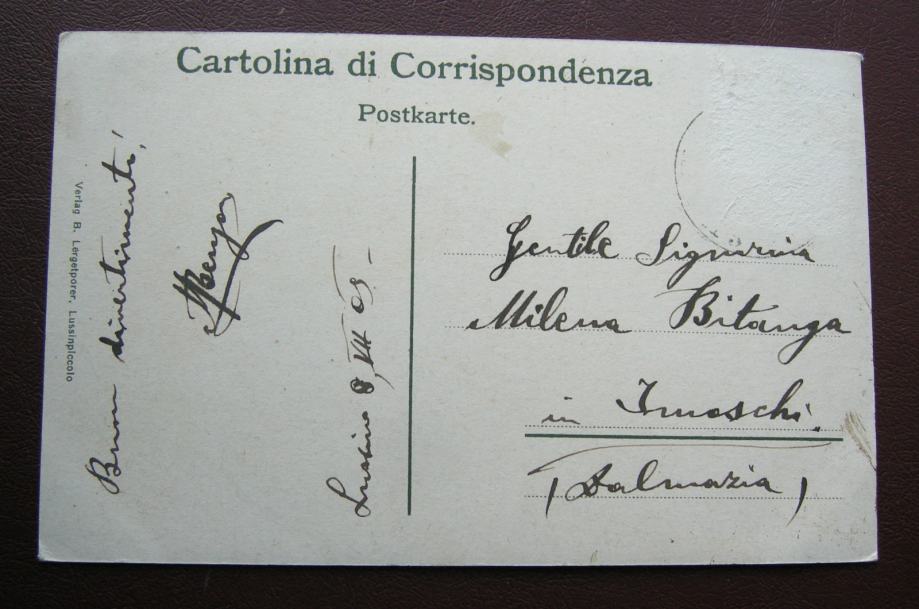 Cartolina di Corrispondenza
Postkarte.
Verlag B. Lergetporer, Lussinpiccolo
Buon divertimento!
Lussino 8, VII 09.-
Gentile Signorina
Milena Bitanga
in Imoschi.
(Dalmazia)